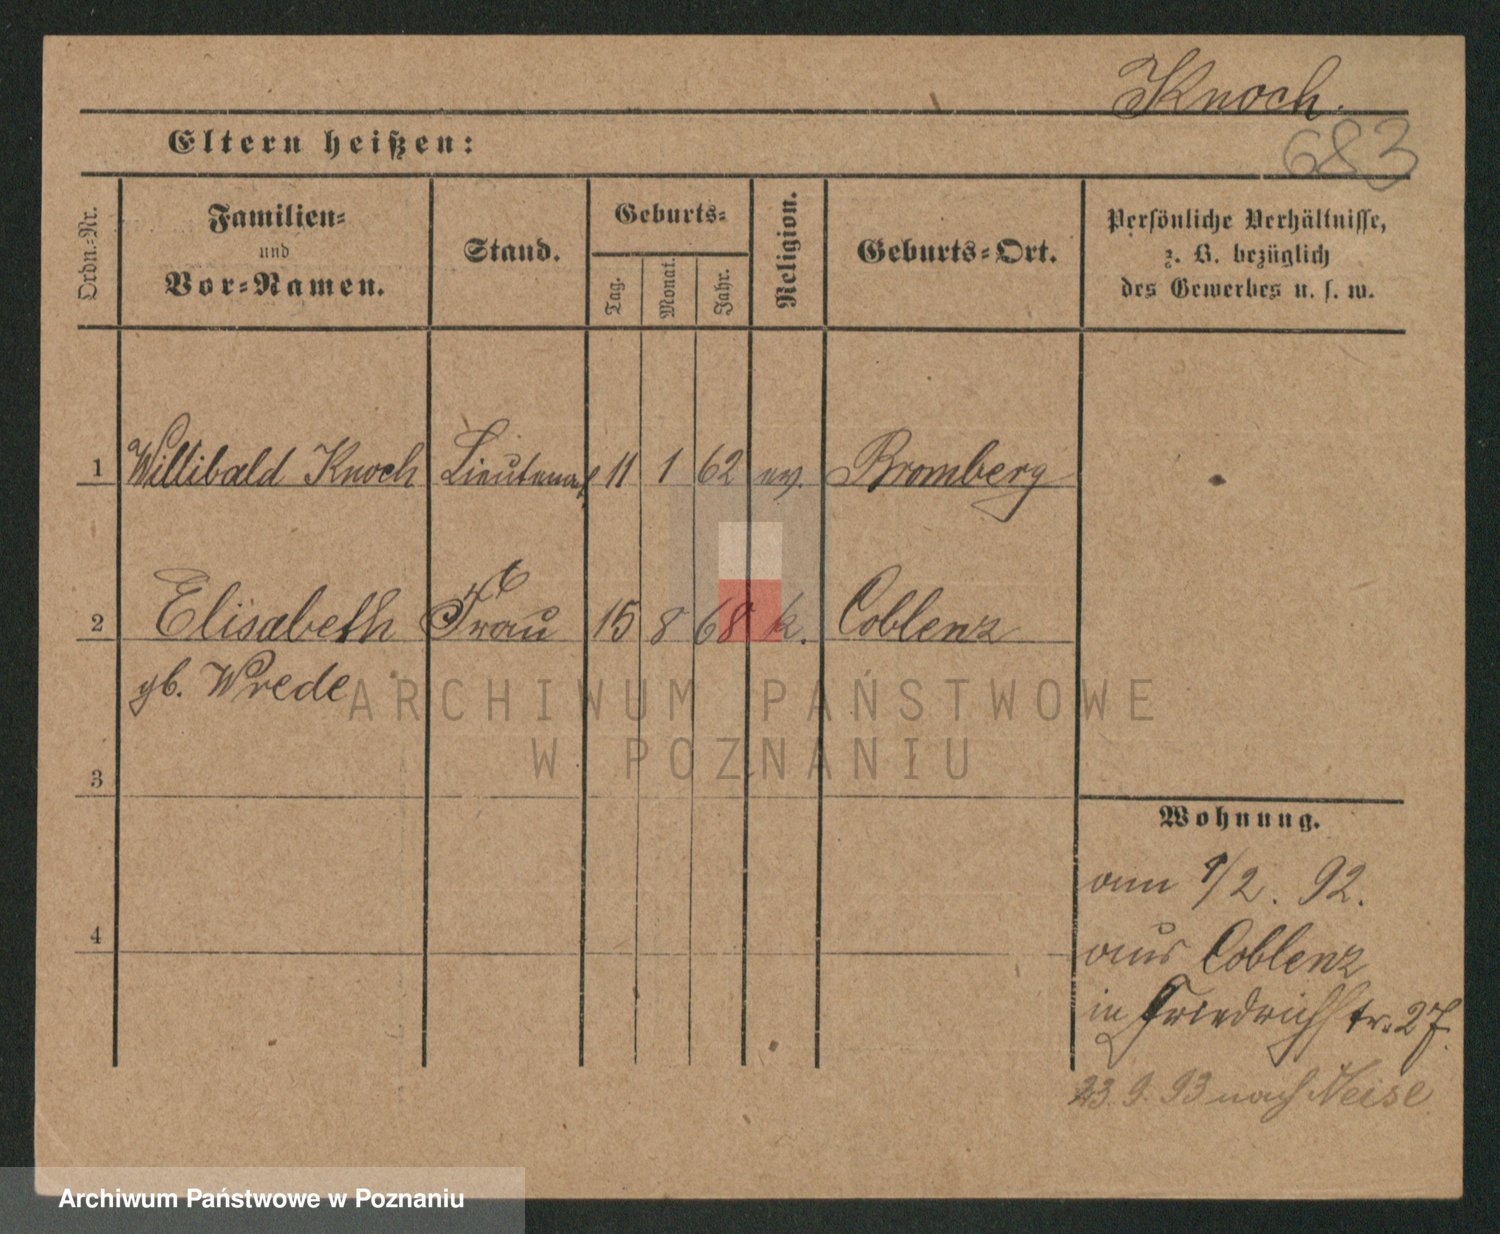 Knoch.
683
Eltern heißen:
Ordn.-Nr.
Familien-
und
Vor-Namen.
Stand.
Geburts-
Tag.
Monat.
Jahr.
Religion.
Geburts-Ort.
Persönliche Verhältnisse,
z. B. bezüglich
des Gewerbes u. s. w.
1 Willibald Knoch Lieutenant 11 1 62 ev. Bromberg
2 Elisabeth Frau 15 8 68 k. Coblenz
gb. Wrede
ARCHIWUM PAŃSTWOWE
W POZNANIU
3
4
Wohnung.
am 1/2. 92.
aus Coblenz
in Friedrichstr. 27.
23. 9. 93 nach Neise
Archiwum Państwowe w Poznaniu